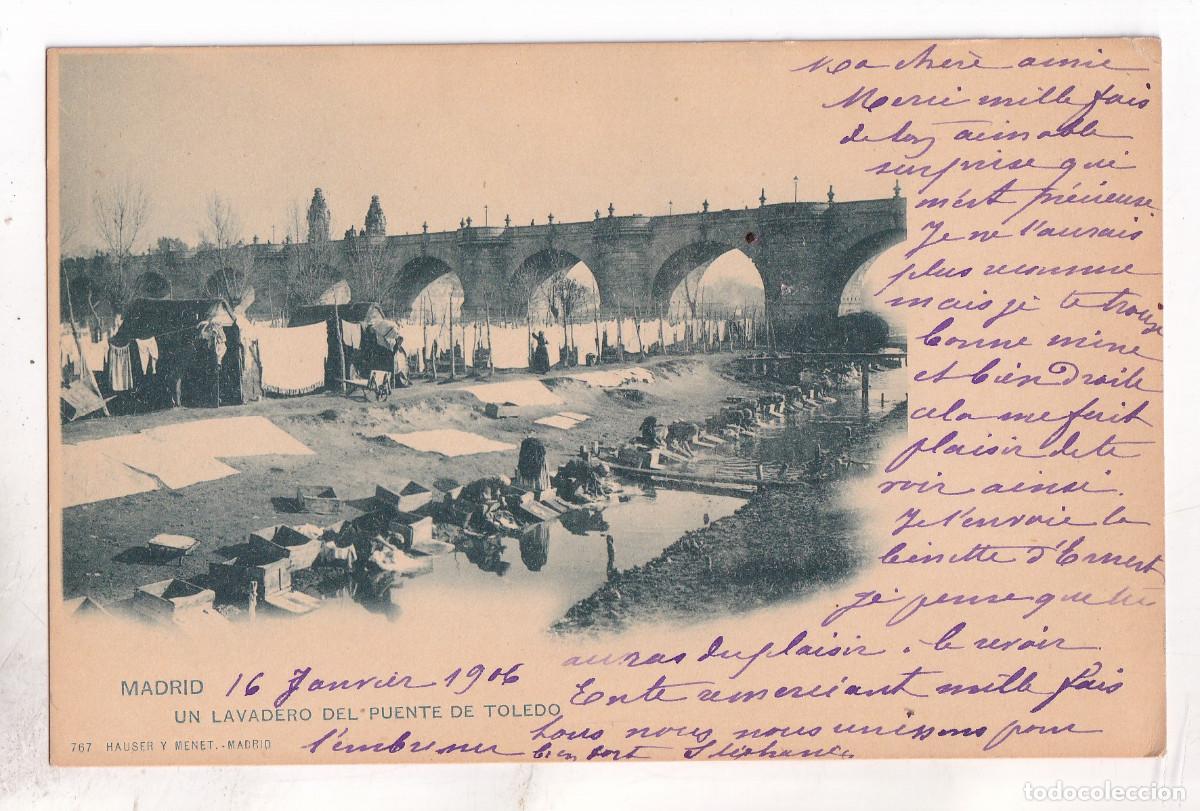 Ma chère amie
Merci mille fois
de ton aimable
surprise qui
m'est précieuse
Je ne t'aurais
plus reconnue
mais je te trouve
bonne mine
et bien droite
cela me fait
plaisir de te
voir ainsi.
Je t'envoie la
binette d'Ernest
je pense que tu
auras du plaisir à le revoir.
En te remerciant mille fois
tous nous nous unissons pour
t'embrasser bien fort Stéphanie
MADRID 16 Janvier 1906
UN LAVADERO DEL PUENTE DE TOLEDO
767 HAUSER Y MENET.-MADRID
todocoleccion